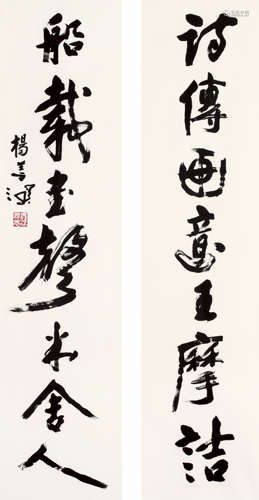 詩傳画意王摩詰
船載书聲米舍人
楊善深